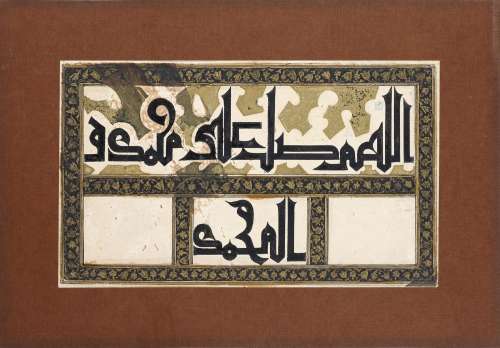 اللهم صل على محمد و
ال محمد